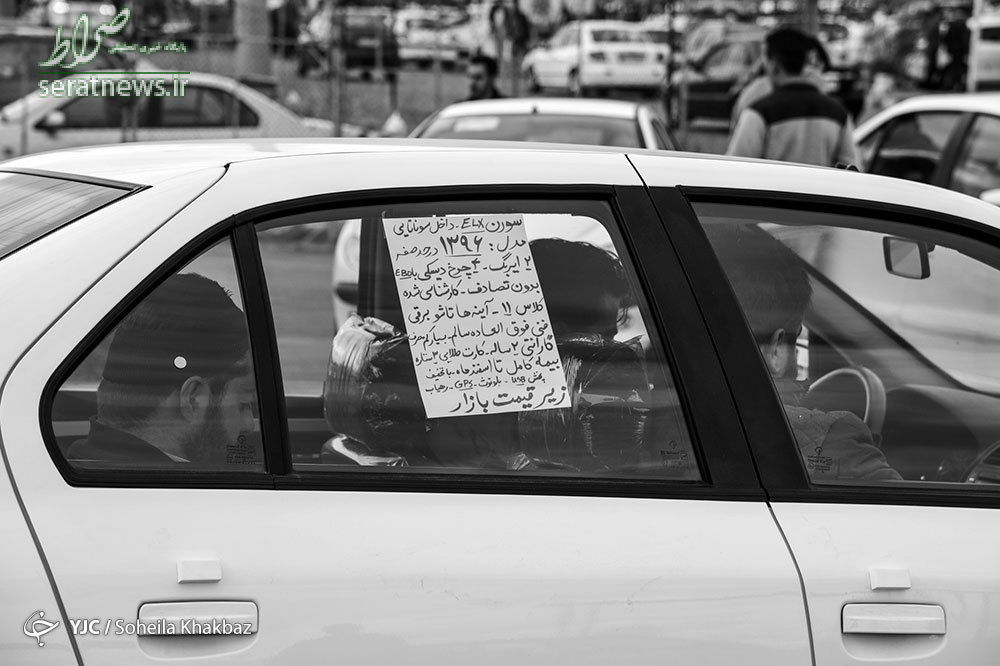 صراط
پایگاه خبری تحلیلی
seratnews.ir
سورن ELX - داخل سوناتایی
مدل: ۱۳۹۶ در حد صفر
۲ ایربگ - ۴ چرخ دیسکی با EBD
بدون تصادف - کارشناسی شده
کلاس ۱۱ - آینه ها تاشو برقی
فنی فوق العاده سالم - بسیار کم حرف
گارانتی ۲ ساله - کارت طلایی ۳ ستاره
بیمه کامل تا اسفندماه - با تخفیف
پخش USB - بلوتوث - GPS - رهیاب
زیر قیمت بازار
YJC / Soheila Khakbaz